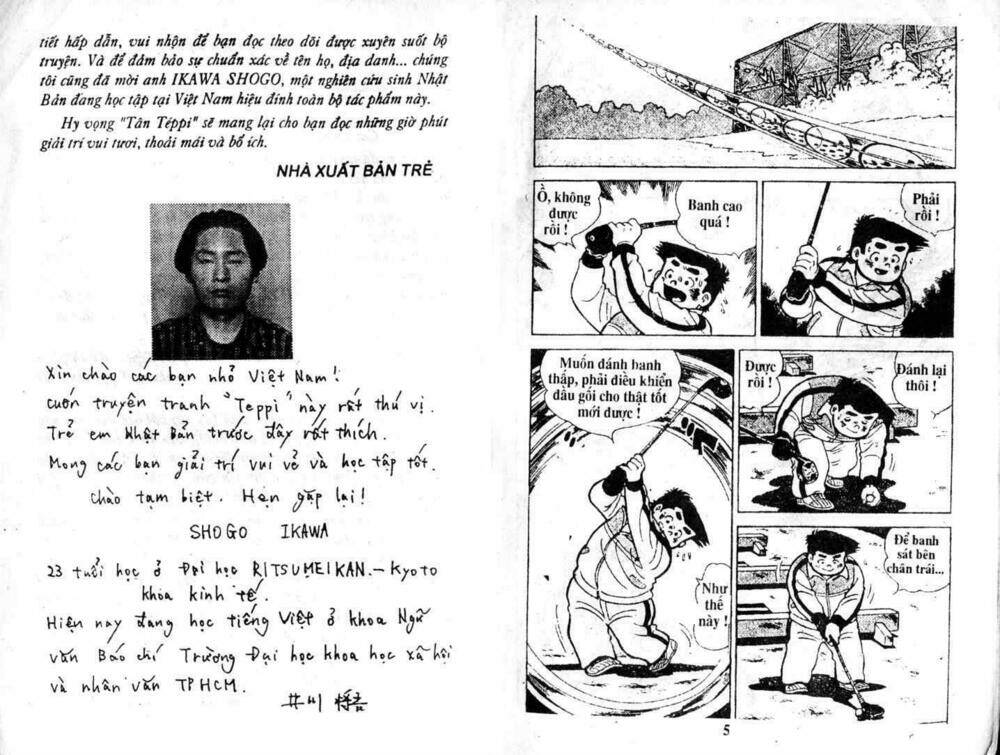 tiết hấp dẫn, vui nhộn để bạn đọc theo dõi được xuyên suốt bộ
truyện. Và để đảm bảo sự chuẩn xác về tên họ, địa danh... chúng
tôi cũng đã mời anh IKAWA SHOGO, một nghiên cứu sinh Nhật
Bản đang học tập tại Việt Nam hiệu đính toàn bộ tác phẩm này.
Hy vọng "Tân Têppi" sẽ mang lại cho bạn đọc những giờ phút
giải trí vui tươi, thoải mái và bổ ích.
NHÀ XUẤT BẢN TRẺ
Xin chào các bạn nhỏ Việt Nam!
cuốn truyện tranh "Teppi" này rất thú vị.
Trẻ em Nhật Bản trước đây rất thích.
Mong các bạn giải trí vui vẻ và học tập tốt.
chào tạm biệt. Hẹn gặp lại!
SHOGO IKAWA
23 tuổi học ở Đại học RITSUMEIKAN.-Kyoto
khoa kinh tế.
Hiện nay đang học tiếng Việt ở khoa Ngữ
văn Báo chí Trường Đại học khoa học xã hội
và nhân văn TPHCM.
井川
Ồ, không
được
rồi !
Banh cao
quá !
Phải
rồi !
Muốn đánh banh
thấp, phải điều khiển
đầu gối cho thật tốt
mới được !
Như
thế
này !
Được
rồi !
Đánh lại
thôi !
Để banh
sát bên
chân trái...
5